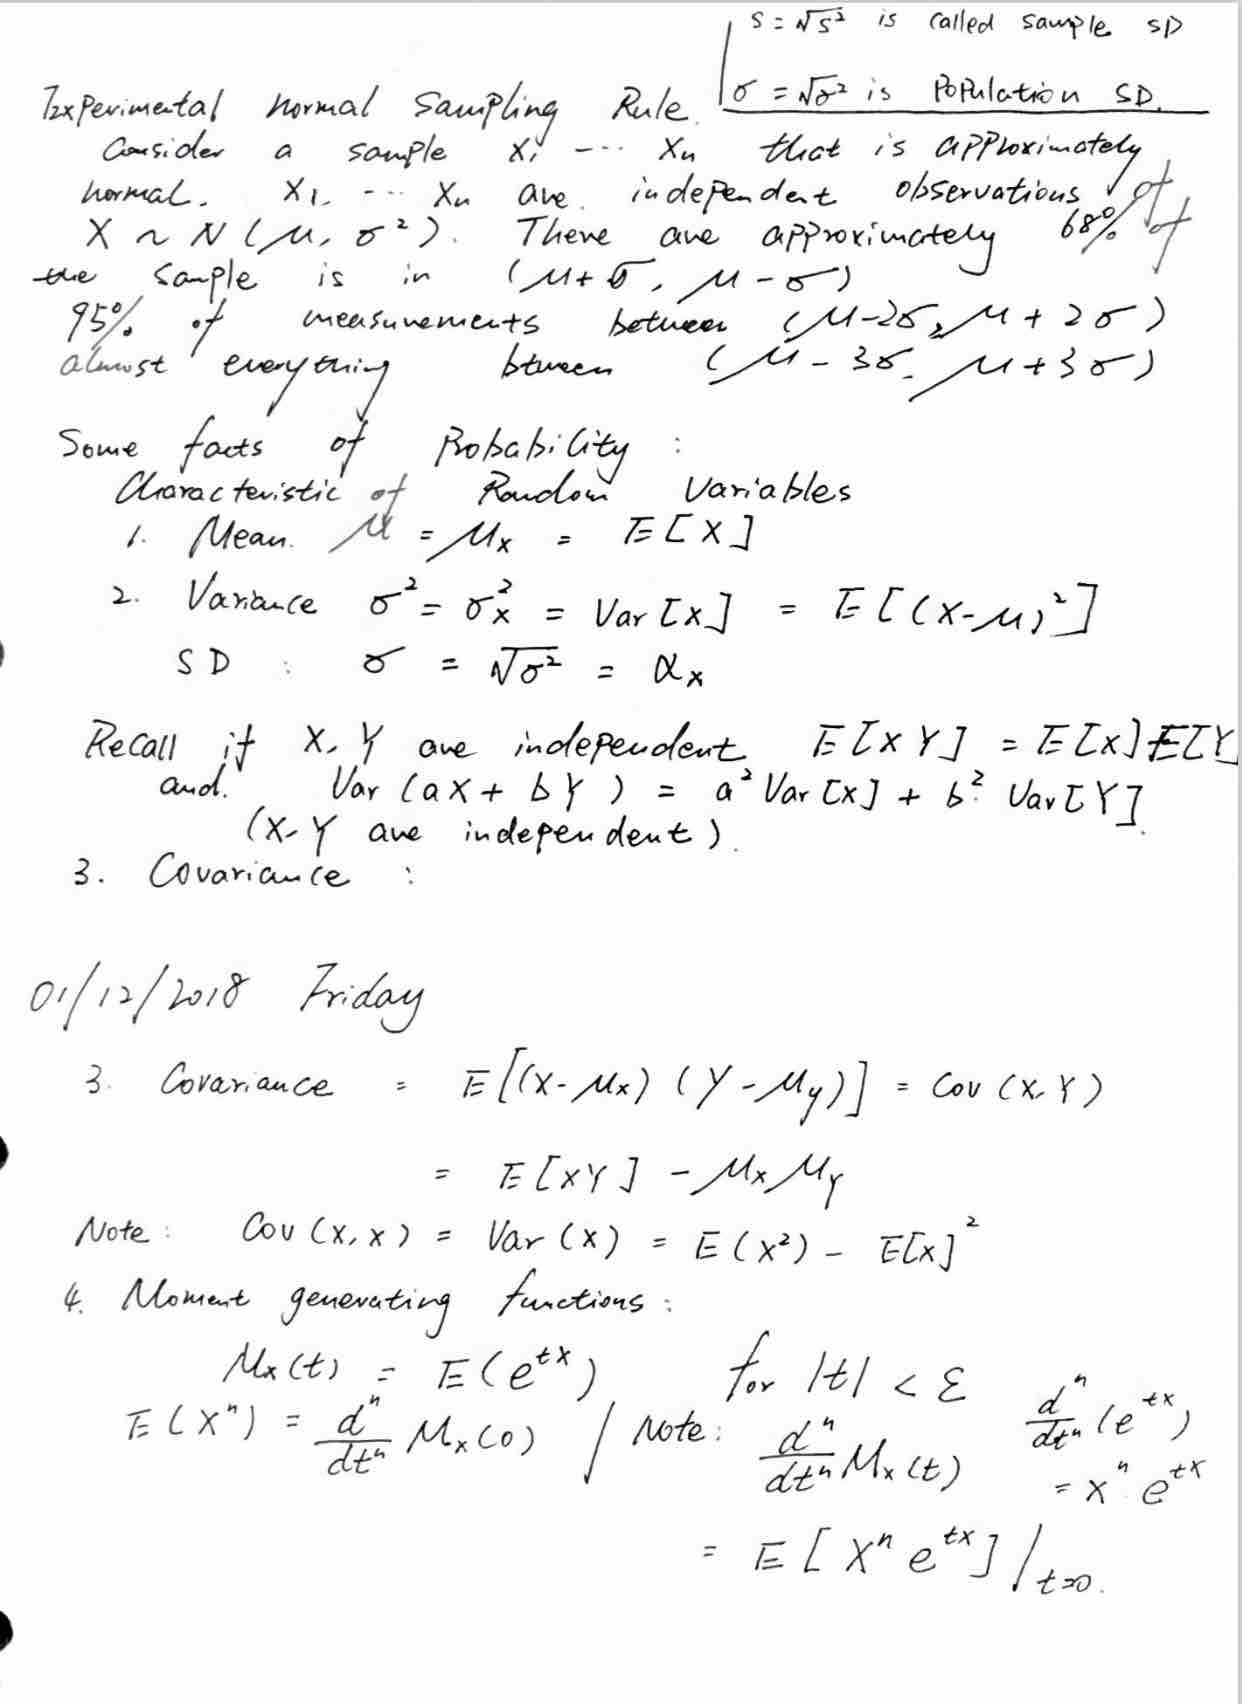 s = √s² is called sample SD
σ = √σ² is Population SD.
Experimental normal Sampling Rule.
Consider a sample X₁, ... Xn that is approximately
normal. X₁, ... Xn are independent observations of
X ~ N(μ, σ²). There are approximately 68% of
the sample is in (μ+σ, μ-σ)
95% of measurements between (μ-2σ, μ+2σ)
almost everything btween (μ-3σ, μ+3σ)
Some facts of Probability :
Characteristic of Random Variables
1. Mean. μ = μx = E[X]
2. Variance σ² = σx² = Var[X] = E[(X-μ)²]
SD : σ = √σ² = αx
Recall if X, Y are independent E[XY] = E[X]E[Y
and. Var(aX + bY) = a² Var[X] + b² Var[Y].
(X, Y are independent).
3. Covariance :
01/12/2018 Friday
3. Covariance = E[(X-μx)(Y-μy)] = Cov(X,Y)
= E[XY] - μxμY
Note: Cov(X,X) = Var(X) = E(X²) - E[X]²
4. Moment generating functions :
Mx(t) = E(e^tX) for |t| < ε
E(Xⁿ) = dⁿ/dtⁿ Mx(0) / Note: dⁿ/dtⁿ Mx(t) dⁿ/dtⁿ (e^tx)
= xⁿ e^tx
= E[Xⁿ e^tX] |t=0.